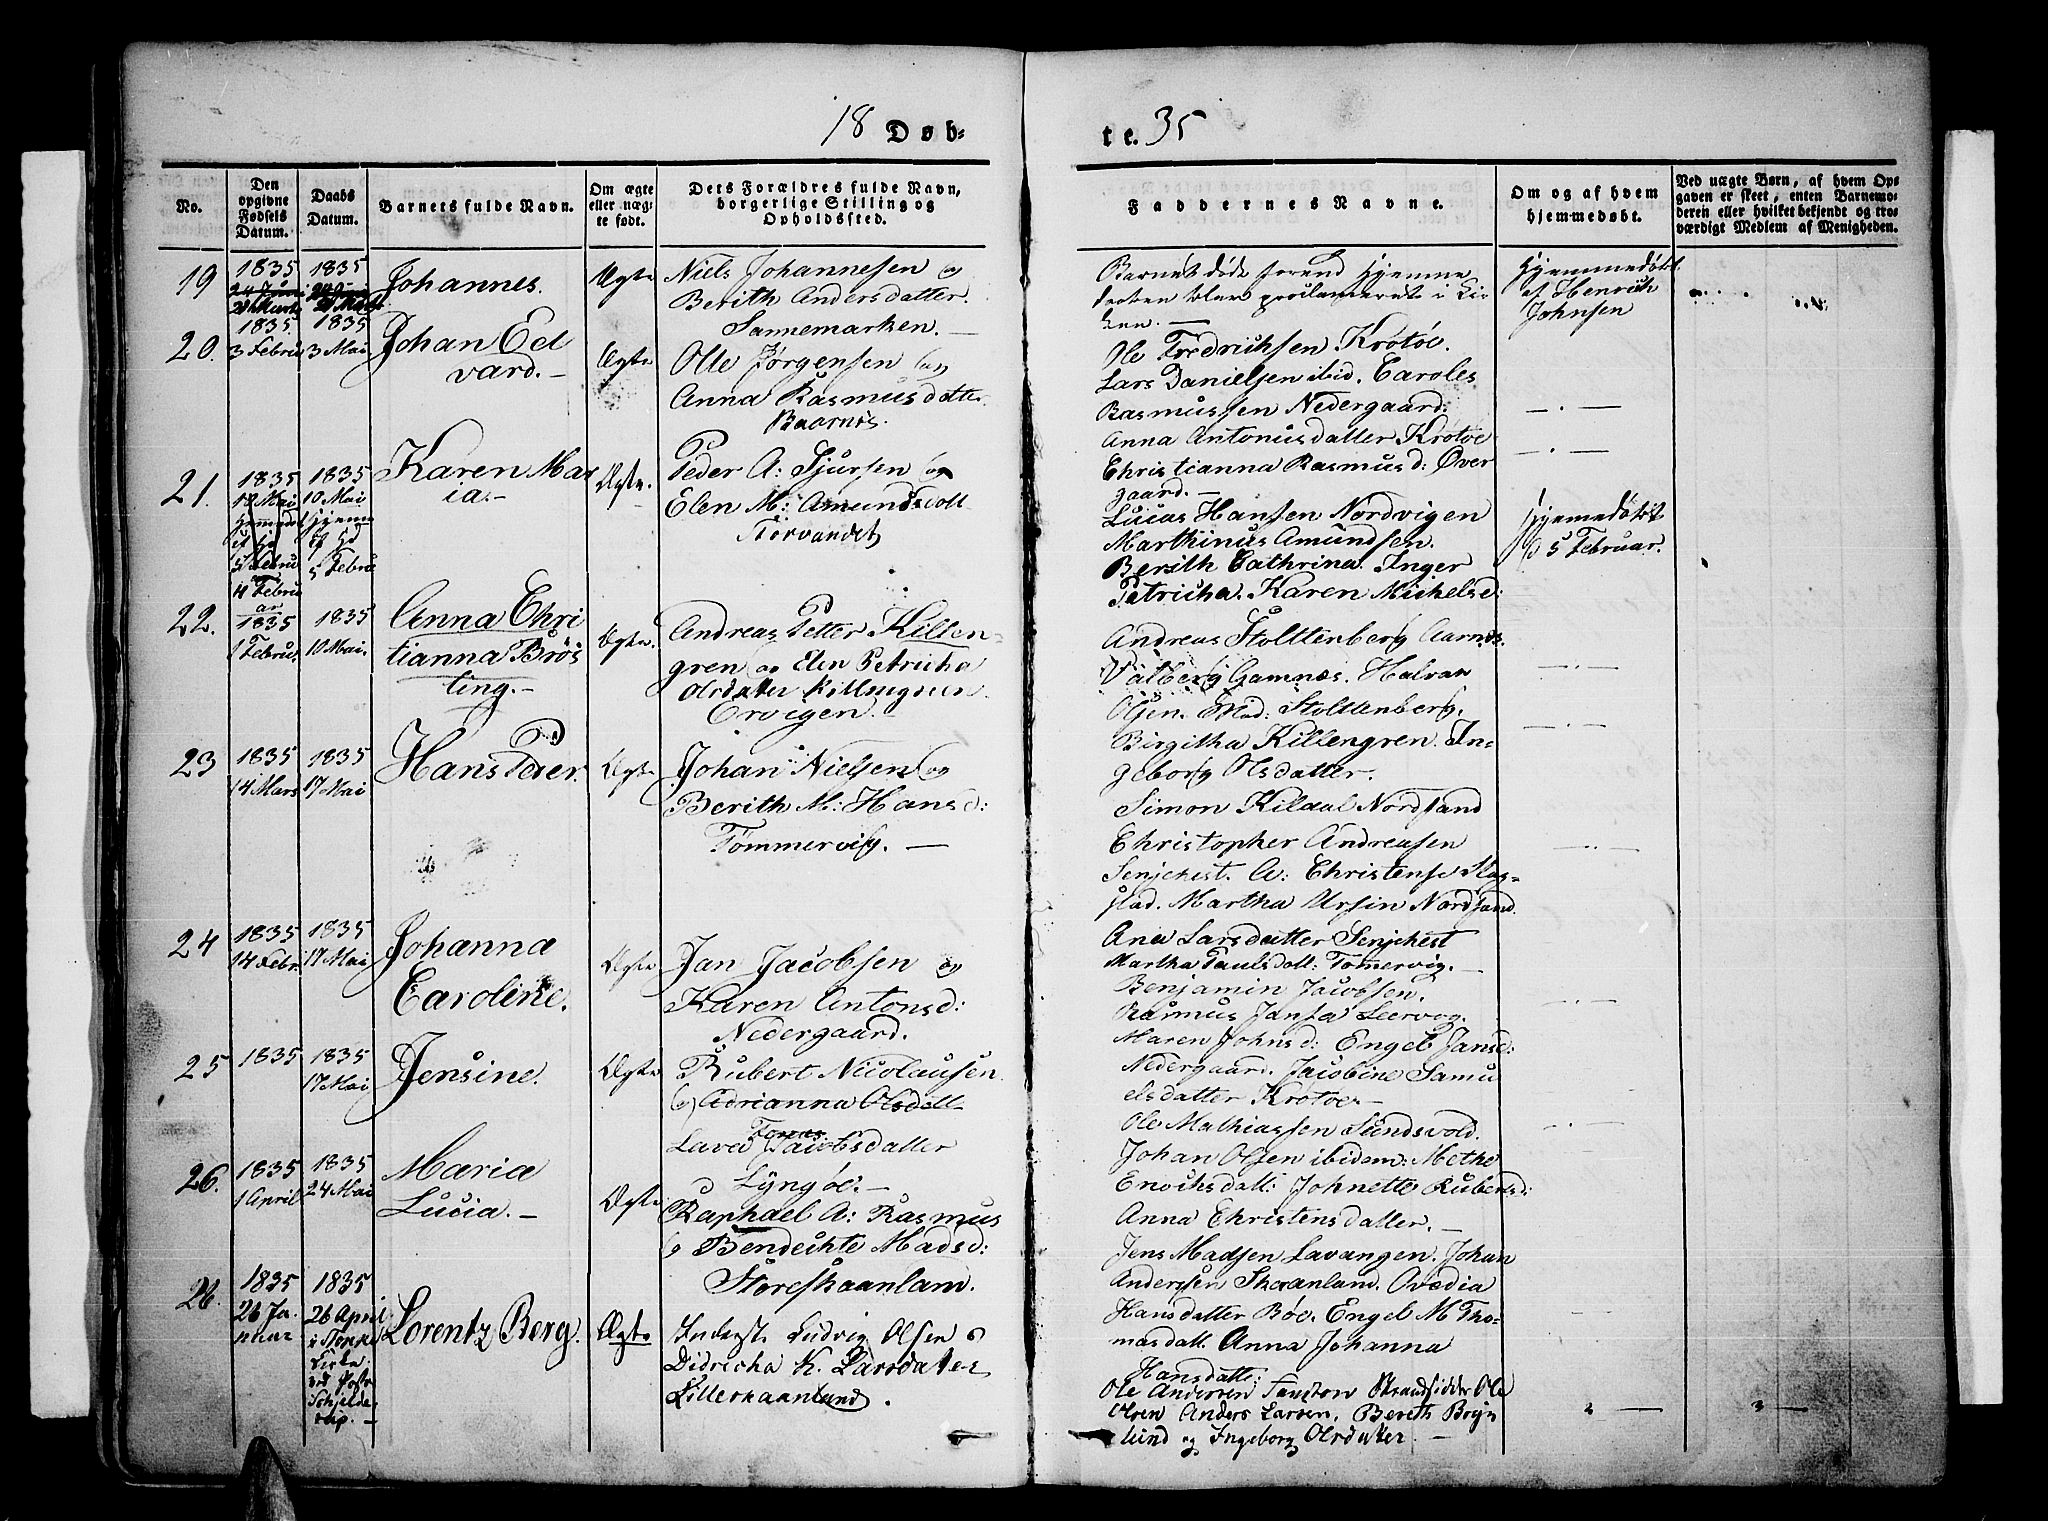 18 Døb-
te. 35
No.
Den
opgivne
Fødsels
Datum.
Daabs
Datum.
Barnets fulde Navn.
Om ægte
eller uæg-
te født.
Dets Forældres fulde Navn,
borgerlige Stilling og
Opholdssted.
Faddernes Navne.
Om og af hvem
hjemmedøbt.
Ved uægte Børn, af hvem Op-
gaven er skeet, enten Barnemo-
deren eller hvilket bekjendt og tro-
værdigt Medlem af Menigheden.
19
1835
1835
Johannes.
Ægte
Niels Johannesen og
Berith Andersdatter.
Sannemarken. —
Barnet døde forend Hjemme
daaben blev proclameret i Kir
ken. —
Hjemmedøbt
af Henrich
Johnsen
20.
1835.
3 Febru
1835
3 Mai
Johan Ed
vard. —
Ægte
Olle Jørgensen og
Anna Rasmusdatter
Baarnes.
Ole Fredrichsen Krøtøe.
Lars Danielsen ibid. Caroles
Rasmussen Nedergaard:
Anna Antonusdatter Krotoe
Christianna Rasmusd: Over
gaard. —
21.
1835
10 Mai
5 Febru
4 Febru
ar
1835
10 Mai
Hjemme
5 Febru
Karen Mar
ia. —
Ægte.
Peder A: Sjursen og
Elen M: Amundsdatt
Storvandet
Lucas Hansen Nordvigen
Marthinus Amundsen.
Berith Cathrina. Inger
Petricha. Karen Michelsd:
Hjemmedøbt
d 5 Februar.
22.
1835
1 Febru.
1835
10 Mai.
Anna Chri
tianna Brøs
ting. —
Ægte.
Andreas Petter Killen-
gren og Elen Petriche
Olsdatter Killengreen
Ervigen. —
Andreas Stolttenberg Aarnes.
Valberg Gamnæs. Halvar
Olsen. Mad: Stolttenberg.
Birgitha Killengren. In-
geborg Olsdatter.
23
1835
14 Mars
1835
17 Mai
Hans Peder.
Ægte
Johan Nielsen og
Berith M: Hansd:
Tømmervig. —
Simon Kildal Nordsand
Christopher Andreasen
Senjehest. A: Christense Stag-
stad. Martha Ursin Nordsand.
Ane Larsdatter Senjehest
Martha Paulsdatt: Tømervig. —
24
1835
14 Febr.
1835
17 Mai
Johanna
Caroline.
Ægte
Jan Jacobsen og
Karen Antonsd:
Nedergaard.
Benjamin Jacobsen.
Rasmus Jansa Leervog.
Maren Johnsd: Engel Jansd:
Nedergaard. Jacobine Samu
elsdatter Krøtøe —
25
1835
1835
17 Mai
Jensine.
Ægte
Rubert Nicolausen
og Adrianna Olsdatt
Ole Mathiassen Sundsvold.
Johan Olsen ibidem: Methe
Enochsdatt: Johnette Rubersd:
Anna Christensdatter. —
Jacobsdatter
Lyngøe. —
26.
1835
1 April
1835
24 Mai
Maria
Lucia. —
Ægte
Raphael A: Rasmus
og Bendichte Madsd:
Storeskaanlam.
Jens Madsen Lavangen. Johan
Anderssen Skaanland. Ovedia
Hansdatter Bøe. Engel M Tho-
masdatt. Anna Johanna
Hansdatt:
26.
1835
26 Ja-
nuar
1835
26 April
i
Kirke
Lorentz Berg.
Ægte
Inderst. Ludvig Olsen o
Didricha K. Larsdatter
Lilleskaanland.
Ole Andersen Strandsidder Ole
Olsen Anders Larsen. Bereth
lund og Ingeborg Olsdatter. —